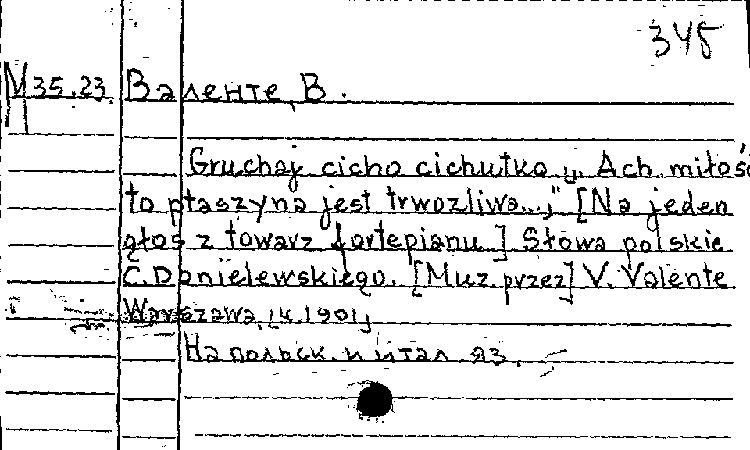 345
М 35.23. Валенте, В.
Gruchaj cicho cichutko „Ach miłość
to ptaszyna jest trwożliwa...," [Na jeden
głos z towarz fortepianu.] Słowa polskie
C. Danielewskiego. [Muz. przez] V. Valente
Warszawa, [K. 1901]
На польск. и итал. яз.